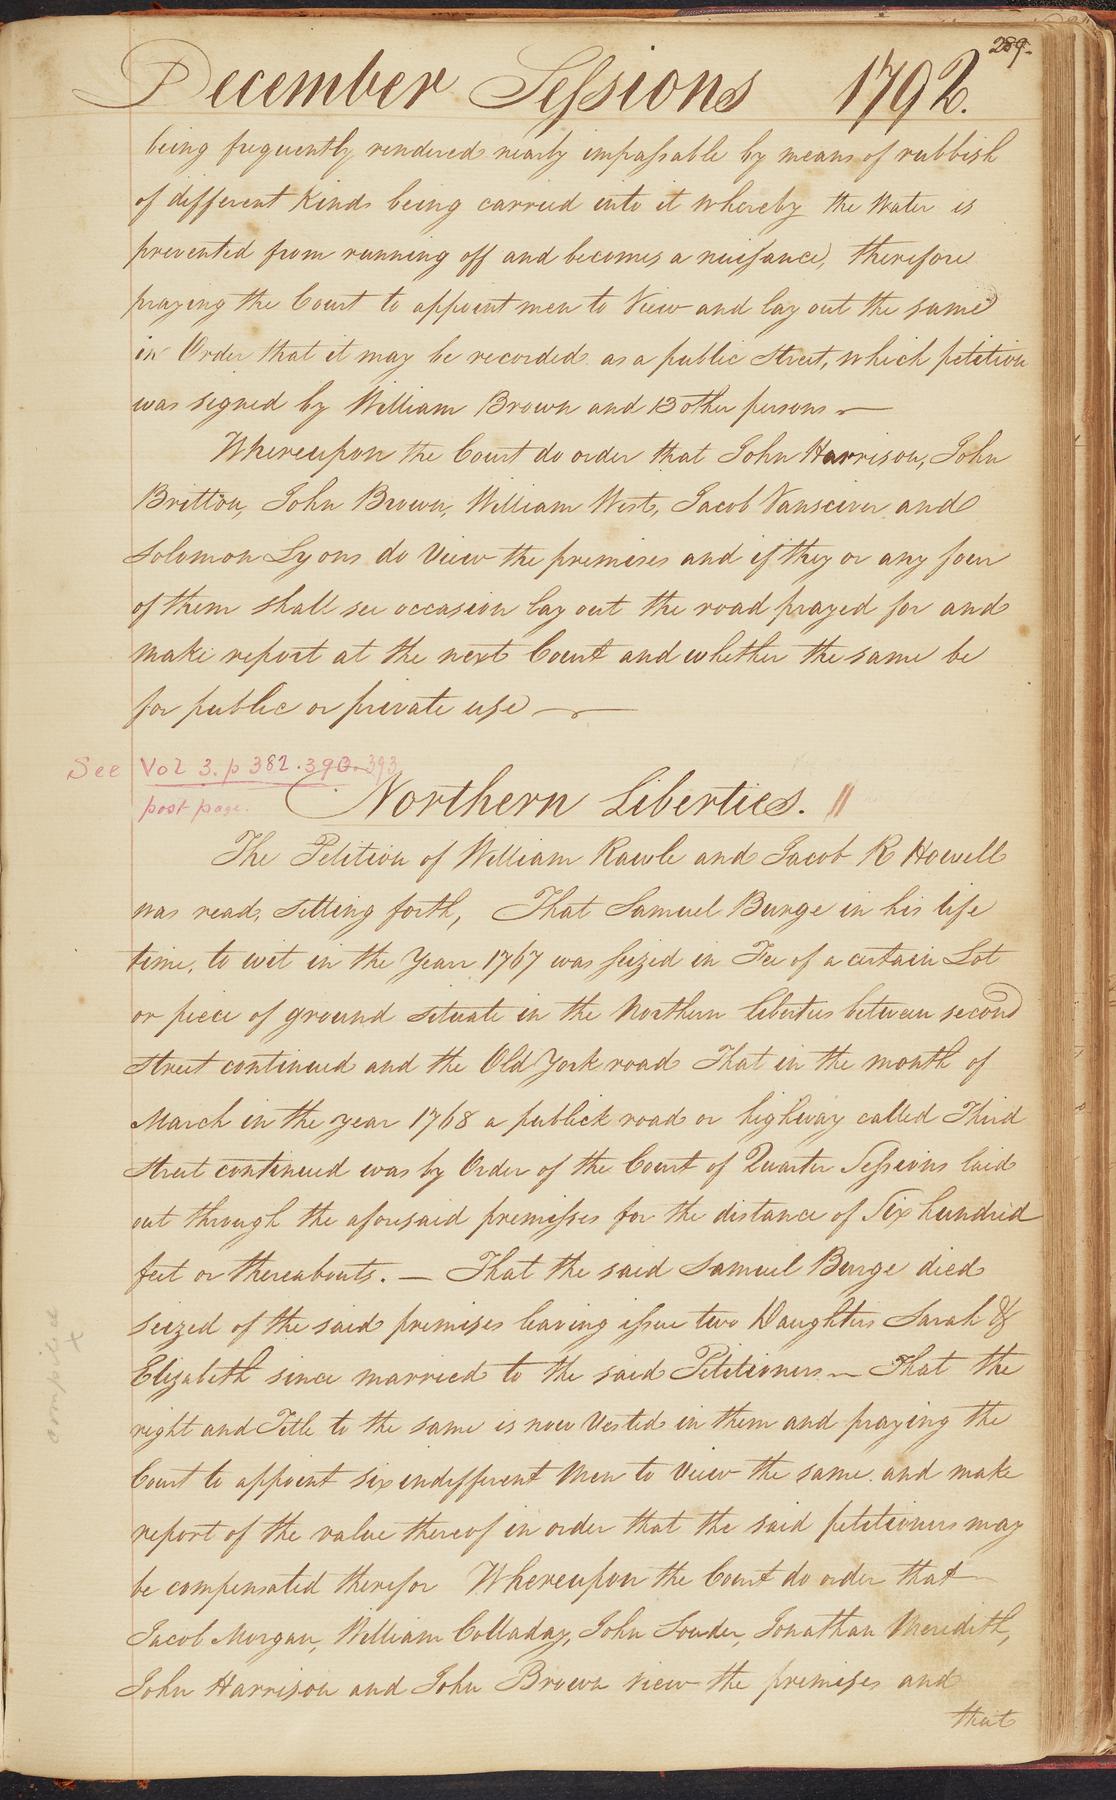 289.
December Sessions 1792.
being frequently rendered nearly impassable by means of rubbish
of different Kinds being carried into it whereby the Water is
prevented from running off and becomes a nuisance, therefore
praying the Court to appoint men to View and lay out the same
in Order that it may be recorded as a public Street, which petition
was signed by William Brown and 13 other persons —
Whereupon the Court do order that John Harrison, John
Britton, John Brown, William West, Jacob Vansciver and
Solomon Lyons do View the premises and if they or any four
of them shall see occasion lay out the road prayed for and
make report at the next Court and whether the same be
for public or private use —
See Vol 3. p 382. 390. 393
post page.
Northern Liberties. 11
The Petition of William Rawle and Jacob R Howell
was read, setting forth, That Samuel Burge in his life
time, to wit in the Year 1767 was seized in Fee of a certain Lot
or piece of ground situate in the Northern liberties between second
Street continued and the Old York road That in the month of
March in the year 1768 a publick road or highway called Third
Street continued was by Order of the Court of Quarter Sessions laid
out through the aforesaid premisses for the distance of Six hundred
feet or thereabouts. — That the said Samuel Burge died
seized of the said premises leaving issue two Daughters Sarah &
Elizabeth since married to the said Petitioners — That the
right and Title to the same is now Vested in them and praying the
Court to appoint six indifferent Men to View the same and make
report of the value thereof in order that the said petitioners may
be compensated therefor Whereupon the Court do order that
Jacob Morgan, William Colladay, John Souder, Jonathan Meredith,
John Harrison and John Brown view the premises and
that
compiled
x